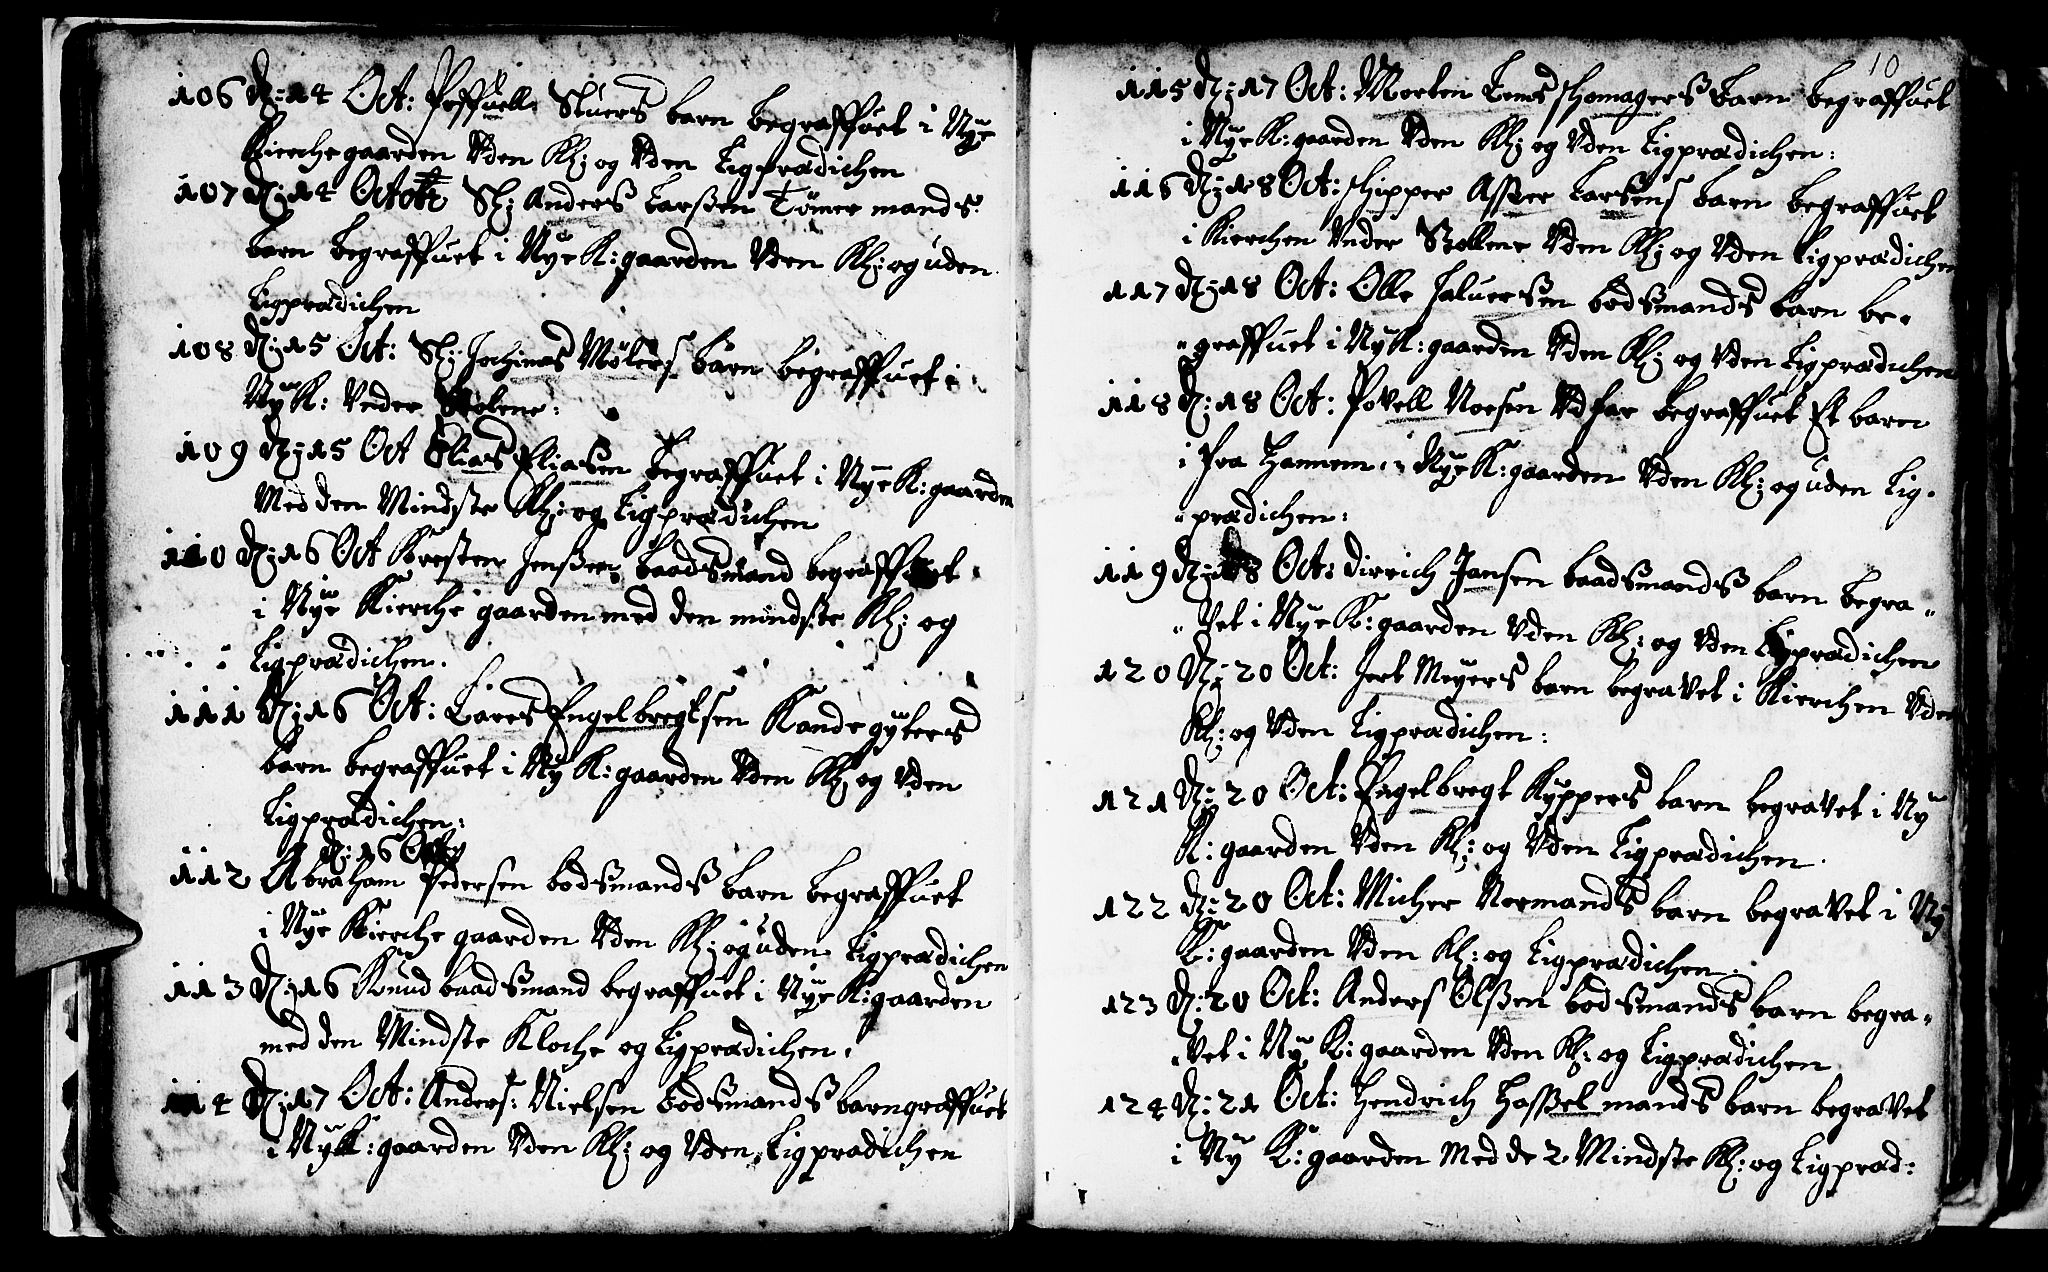 106 D: 14 Oct: Poffuell Stuers barn begraffuet i Nye
Kierche gaarden Vden Kl: og Vden Ligprædichen
107 D: 14 Octob Sl: Anders Larßen Tømer mands
barn begraffuet i Nye K: gaarden Vden Kl: og uden
Ligprædichen
108 D: 15 Oct: Sl: Jochimes Møllers barn begraffuet i
Ny K: Vnder Stolene:
109 D: 15 Oct Elias Eliasen begraffuet i Nye K: gaarden
Med den Mindste Kl: og Ligprædichen
110 D: 16 Oct Kresten Jenßen baadsmand begraffuet
i Nye Kierche gaarden med den mindste Kl: og
Ligprædichen.
111 D: 16 Oct: Lares Engelbregtsen Kandegyters
barn begraffuet i Ny K: gaarden Vden Kl: og Vden
Ligprædichen:
D: 16 Oct
112 Abraham Pedersen bodsmandß barn begraffuet
i Nye Kierche gaarden Vden Kl: og uden Ligprædichen
113 D: 16 Knud baadsmand begraffuet i Nye K: gaarden
med den Mindste Kloche og Ligprædichen.
114 D: 17 Oct: Anders: Nielsen bodsmandß barn graffuet
i Ny K: gaarden Vden Kl: og Vden Ligprædichen
10
115 D: 17 Oct: Morten schomagerß barn begraffuet
i Nye K: gaarden Vden Kl: og Vden Ligprædichen:
116 D: 18 Oct: schipper Asser Larsens barn begraffuet
i Kierchen Vnder Stollene Vden Kl: og Vden Ligprædichen
117 D: 18 Oct: Olle Haluersen bodsmands barn be-
graffuet i Ny K: gaarden Vden Kl: og Vden Ligprædichen
118 D: 18 Oct: Povell Noesen begraffuet Et barn
i fra Hannem i Nye K: gaarden Vden Kl: og uden Lig-
prædichen:
119 D: 18 Oct: Dirrich Jansen baadsmandß barn begra-
vet i Nye K: gaarden Vden Kl: og Vden Ligprædichen
120 D: 20 Oct: Jert Meyers barn begravet i Kierchen Vden
Kl: og Vden Ligprædichen:
121 D: 20 Oct: Engelbregt Kyppers barn begravet i Ny
K: gaarden Vden Kl: og Vden Ligprædichen.
122 D: 20 Oct: Micher Normands barn begravet i Ny
K: gaarden Vden Kl: og Ligprædichen.
123 D: 20 Oct: Anders Olßen bodsmands barn begra-
vet i Ny K: gaarden Vden Kl: og Ligprædichen
124 D: 21 Oct: Hendrich Haßelmands barn begravet
i Ny K: gaarden Med de 2 Mindste Kl: og Ligpræd: